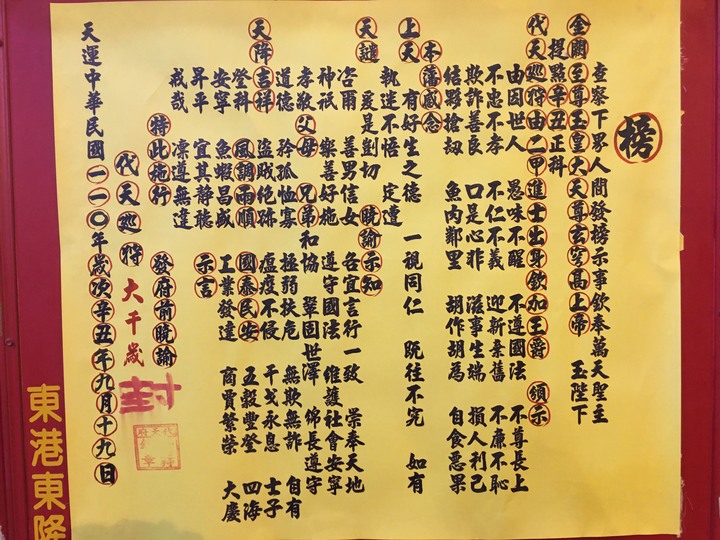 榜
查察下界人間發榜示事欽奉萬天聖主
金闕至尊玉皇大天尊玄穹高上帝 玉陛下
提點辛丑正科
代天巡狩由二甲進士出身欽加王爵 頒示
由因世人 愚昧不醒 不遵國法 不尊長上
不忠不孝 不仁不義 迎新棄舊 不廉不恥
欺詐善良 口是心非 滋事生端 損人利己
結夥搶劫 魚肉鄰里 胡作胡為 自食惡果
本藩感念
上天 有好生之德 一視同仁 既往不究 如有
執迷不悟 定遭
天譴 爰是剴切 曉諭示知
咨爾 善男信女 各宜言行一致 崇奉天地
神祇 樂善好施 遵守國法 維護社會安寧
孝敬 父母 兄弟和協 鞏固世澤 綿長遵守
道德 矜孤恤寡 極弱扶危 無欺無詐 自有
天降吉祥 盜賊絕跡 瘟疫不侵 干戈永息 士子
登科 風調雨順 國泰民安 五穀豐登 四海
安寧 魚蝦昌盛 工業發達 商賈繁榮 大慶
昇平 宜其靜聽 示言
戒哉 凜遵無違
特此施行
發府前曉諭
代天巡狩 大千歲 封
天運中華民國一一〇年歲次辛丑年九月十九日
東港東隆